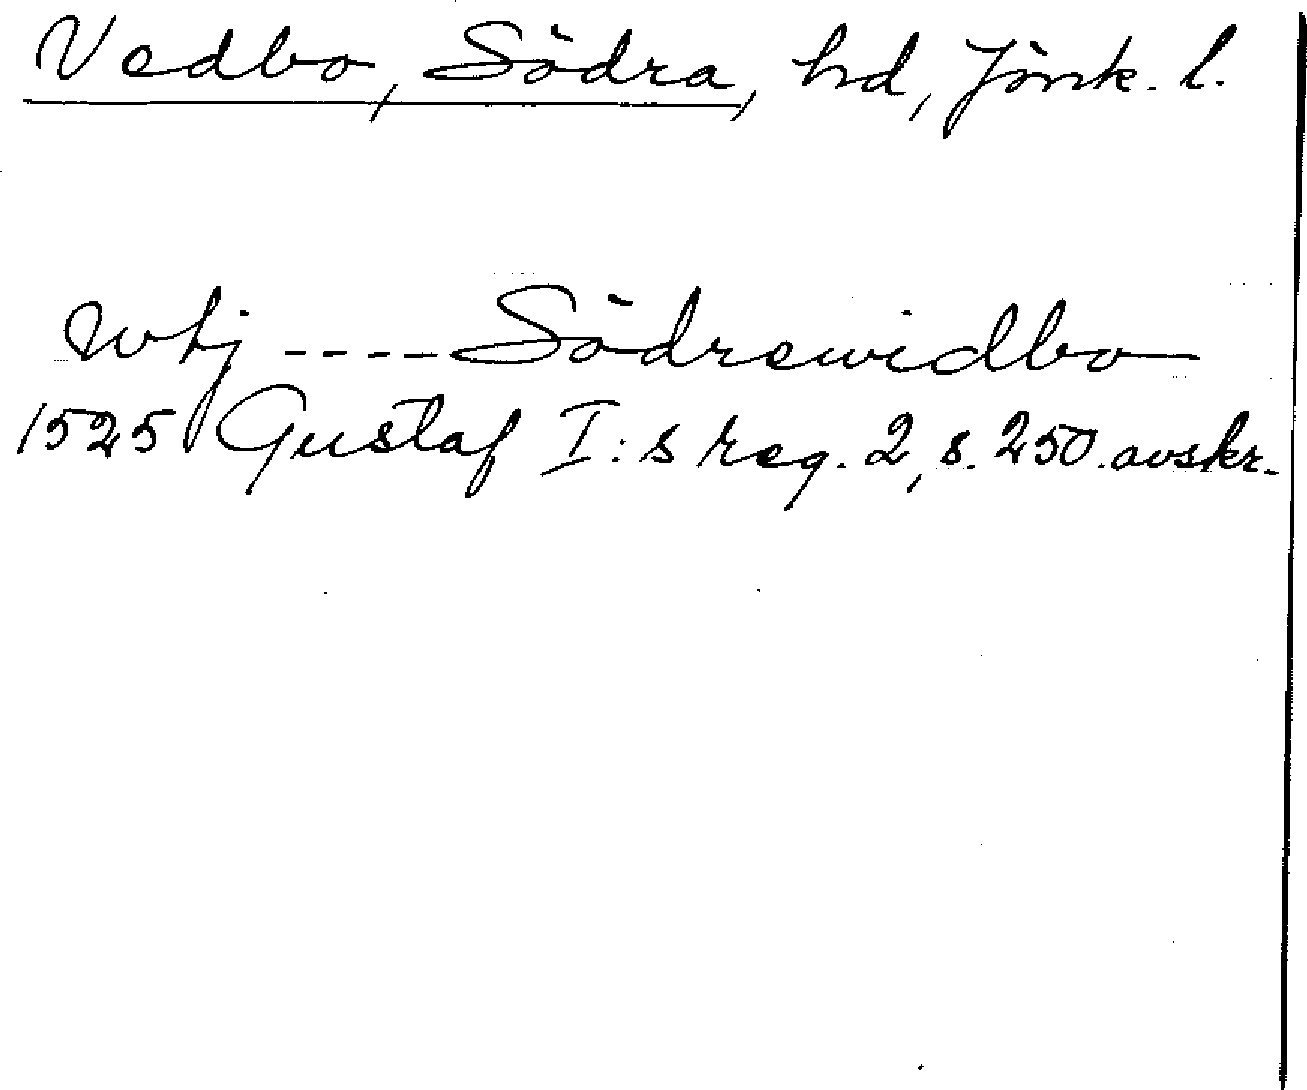 Vedbo, Södra, hd, Jönk. l.
wtj ---- Södrewidbo
1525 Gustaf I:s reg. 2, s. 250. avskr.